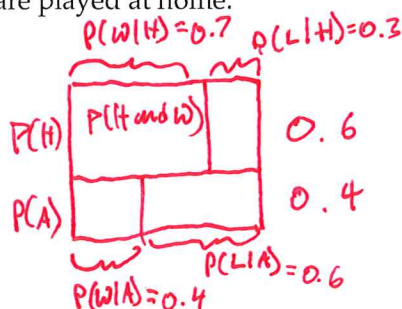 are played at home.
P(W|H)=0.7 P(L|H)=0.3
P(H) P(H and W) 0.6
P(A) 0.4
P(W|A)=0.4 P(L|A)=0.6